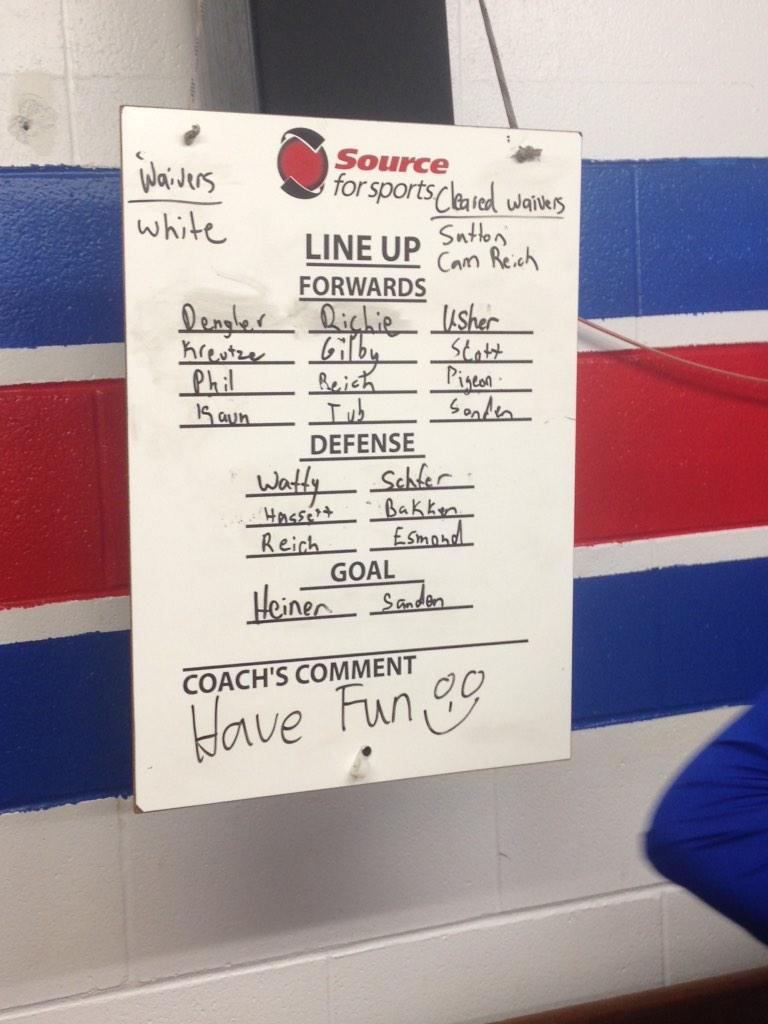 Source
for sports
Waivers
White
Cleared waivers
Sutton
Cam Reich
LINE UP
FORWARDS
Dengler Richie Usher
Kreutze Gilby Scott
Phil Reich Pigeon
Tub Sanden
DEFENSE
Watty Schfer
Hassett Bakken
Reich Esmond
GOAL
Heiner Sanden
COACH'S COMMENT
Have Fun